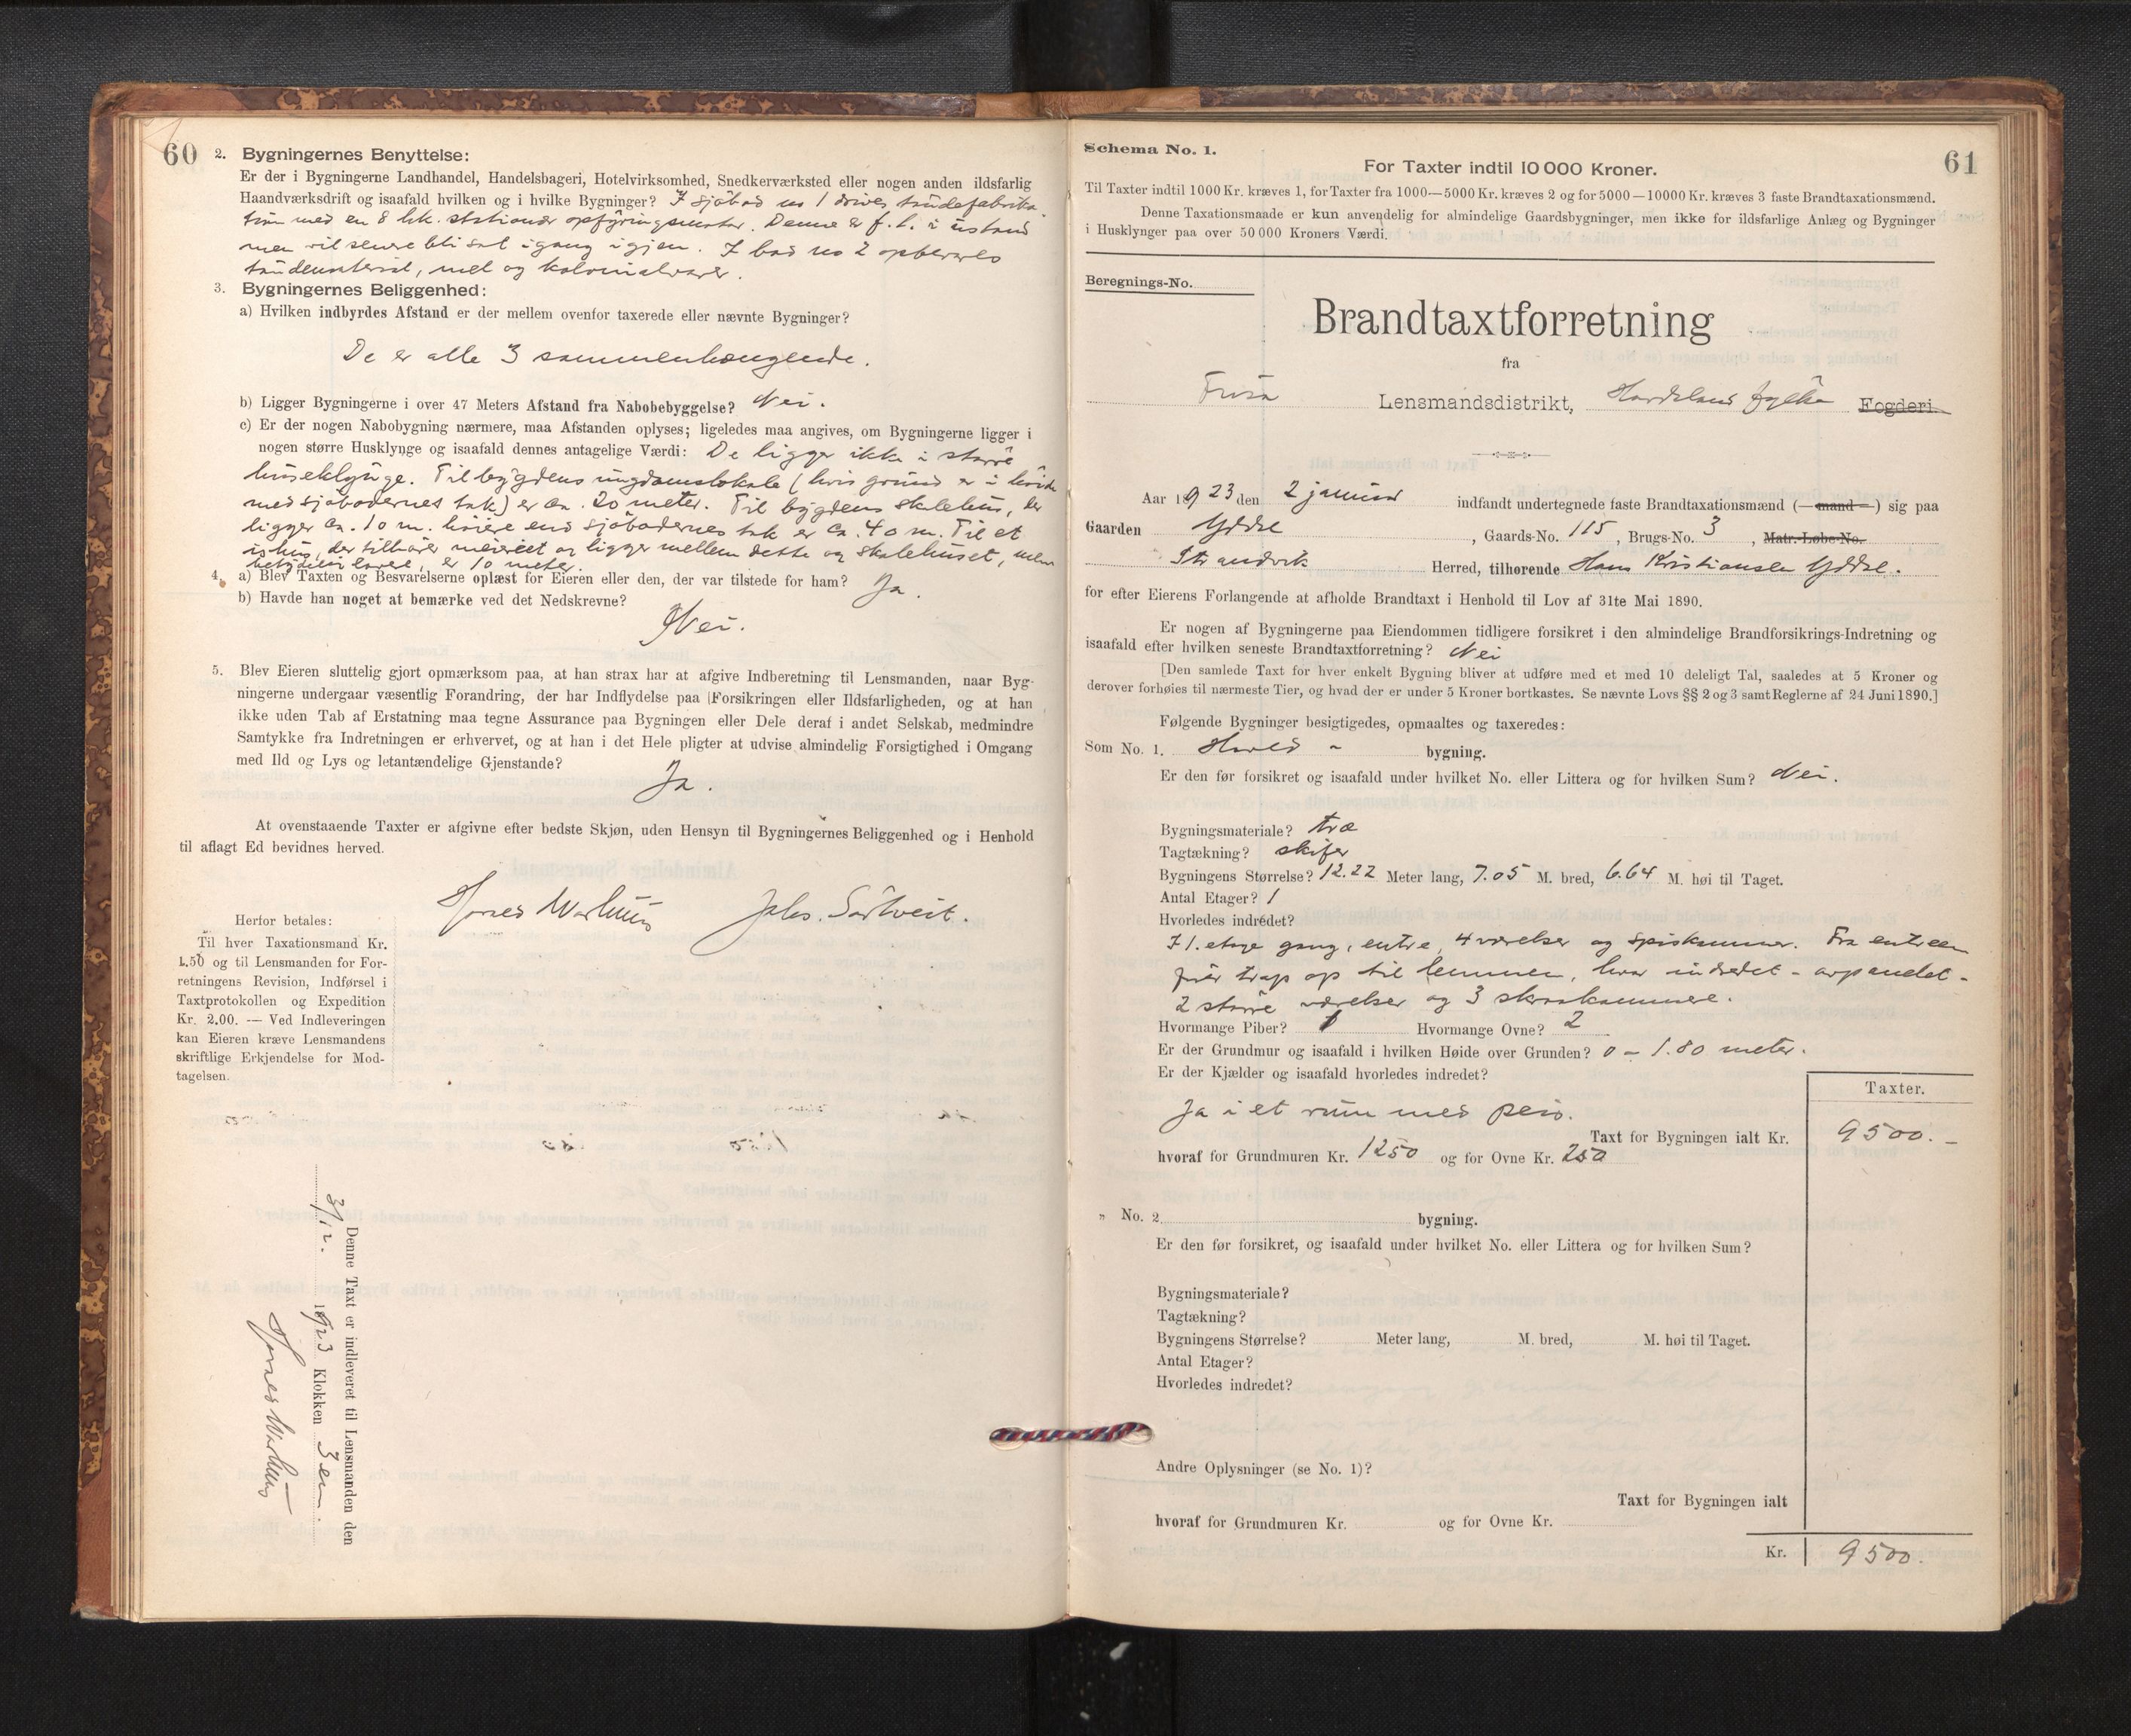 60
2. Bygningernes Benyttelse:
Er der i Bygningerne Landhandel, Handelsbageri, Hotelvirksomhed, Snedkerværksted eller nogen anden ildsfarlig
Haandværksdrift og isaafald hvilken og i hvilke Bygninger? I sjöbod no 1 drives töndefabrika-
tion med en 8 hk. stationær opfyringsmotor. Denne er f. t. i ustand
men vil senere bli sat igang igjen. I bod no 2 opbevares
töndemateriel, mel og kolonialvarer.
3. Bygningernes Beliggenhed:
a) Hvilken indbyrdes Afstand er der mellem ovenfor taxerede eller nævnte Bygninger?
De er alle 3 sammenhængende.
b) Ligger Bygningerne i over 47 Meters Afstand fra Nabobebyggelse? Nei.
c) Er der nogen Nabobygning nærmere, maa Afstanden oplyses; ligeledes maa angives, om Bygningerne ligger i
nogen større Husklynge og isaafald dennes antagelige Værdi: De ligger ikke i större
huseklynge. Til bygdens ungdomslokale (hvis grund er i höide
med sjöbodernes tak) er ca. 20 meter. Til bygdens skolehus, der
ligger ca. 10 m. höiere end sjöbodernes tak er ca. 40 m. Til et
ishus, der tilhörer meieriet og ligger mellem dette og skolehuset, men
betydelig lavere, er 10 meter.
4. a) Blev Taxten og Besvarelserne oplæst for Eieren eller den, der var tilstede for ham? Ja.
b) Havde han noget at bemærke ved det Nedskrevne?
Nei.
5. Blev Eieren sluttelig gjort opmærksom paa, at han strax har at afgive Indberetning til Lensmanden, naar Byg-
ningerne undergaar væsentlig Forandring, der har Indflydelse paa Forsikringen eller Ildsfarligheden, og at han
ikke uden Tab af Erstatning maa tegne Assurance paa Bygningen eller Dele deraf i andet Selskab, medmindre
Samtykke fra Indretningen er erhvervet, og at han i det Hele pligter at udvise almindelig Forsigtighed i Omgang
med Ild og Lys og letantændelige Gjenstande?
Ja.
At ovenstaaende Taxter er afgivne efter bedste Skjøn, uden Hensyn til Bygningernes Beliggenhed og i Henhold
til aflagt Ed bevidnes herved.
Johs. Sörtveit.
Herfor betales:
Til hver Taxationsmand Kr.
1.50 og til Lensmanden for For-
retningens Revision, Indførsel i
Taxtprotokollen og Expedition
Kr. 2.00. — Ved Indleveringen
kan Eieren kræve Lensmandens
skriftlige Erkjendelse for Mod-
tagelsen.
Denne Taxt er indleveret til Lensmanden den
3/12. 1923 Klokken 3 em.
61
Schema No. 1.
For Taxter indtil 10 000 Kroner.
Til Taxter indtil 1000 Kr. kræves 1, for Taxter fra 1000—5000 Kr. kræves 2 og for 5000—10000 Kr. kræves 3 faste Brandtaxationsmænd.
Denne Taxationsmaade er kun anvendelig for almindelige Gaardsbygninger, men ikke for ildsfarlige Anlæg og Bygninger
i Husklynger paa over 50 000 Kroners Værdi.
Beregnings-No.
Brandtaxtforretning
fra
Fusa Lensmandsdistrikt, Hordaland fylke Fogderi
Aar 1923 den 2 januar indfandt undertegnede faste Brandtaxationsmænd (—mand—) sig paa
Gaarden Yddal, Gaards-No. 115, Brugs-No. 3, Matr.-Løbe-No.
Strandvik Herred, tilhørende Hans Kristiansen Yddal.
for efter Eierens Forlangende at afholde Brandtaxt i Henhold til Lov af 31te Mai 1890.
Er nogen af Bygningerne paa Eiendommen tidligere forsikret i den almindelige Brandforsikrings-Indretning og
isaafald efter hvilken seneste Brandtaxtforretning? Nei
[Den samlede Taxt for hver enkelt Bygning bliver at udføre med et med 10 deleligt Tal, saaledes at 5 Kroner og
derover forhøies til nærmeste Tier, og hvad der er under 5 Kroner bortkastes. Se nævnte Lovs §§ 2 og 3 samt Reglerne af 24 Juni 1890.]
Følgende Bygninger besigtigedes, opmaaltes og taxeredes:
Som No. 1. Hoved - bygning.
Er den før forsikret og isaafald under hvilket No. eller Littera og for hvilken Sum? Nei.
Bygningsmateriale? træ
Tagtækning? skifer
Bygningens Størrelse? 12.22 Meter lang, 7.05 M. bred, 6.64 M. høi til Taget.
Antal Etager? 1
Hvorledes indredet?
I 1. etage gang, entre, 4 værelser og spiskammer. Fra entreen
förer trap op til lemmen, hvor indredet - oppanelet -
2 större værelser og 3 skraakammere.
Hvormange Piber? 1 Hvormange Ovne? 2
Er der Grundmur og isaafald i hvilken Høide over Grunden? 0 - 1.80 meter.
Er der Kjælder og isaafald hvorledes indredet?
Ja i et rum med peis.
Taxter.
Taxt for Bygningen ialt Kr. 9500.-
hvoraf for Grundmuren Kr. 1250 og for Ovne Kr. 250
" No. 2 bygning.
Er den før forsikret, og isaafald under hvilket No. eller Littera og for hvilken Sum?
Bygningsmateriale?
Tagtækning?
Bygningens Størrelse? Meter lang, M. bred, M. høi til Taget.
Antal Etager?
Hvorledes indredet?
Andre Oplysninger (se No. 1)?
Taxt for Bygningen ialt
hvoraf for Grundmuren Kr. og for Ovne Kr.
Kr. 9500.